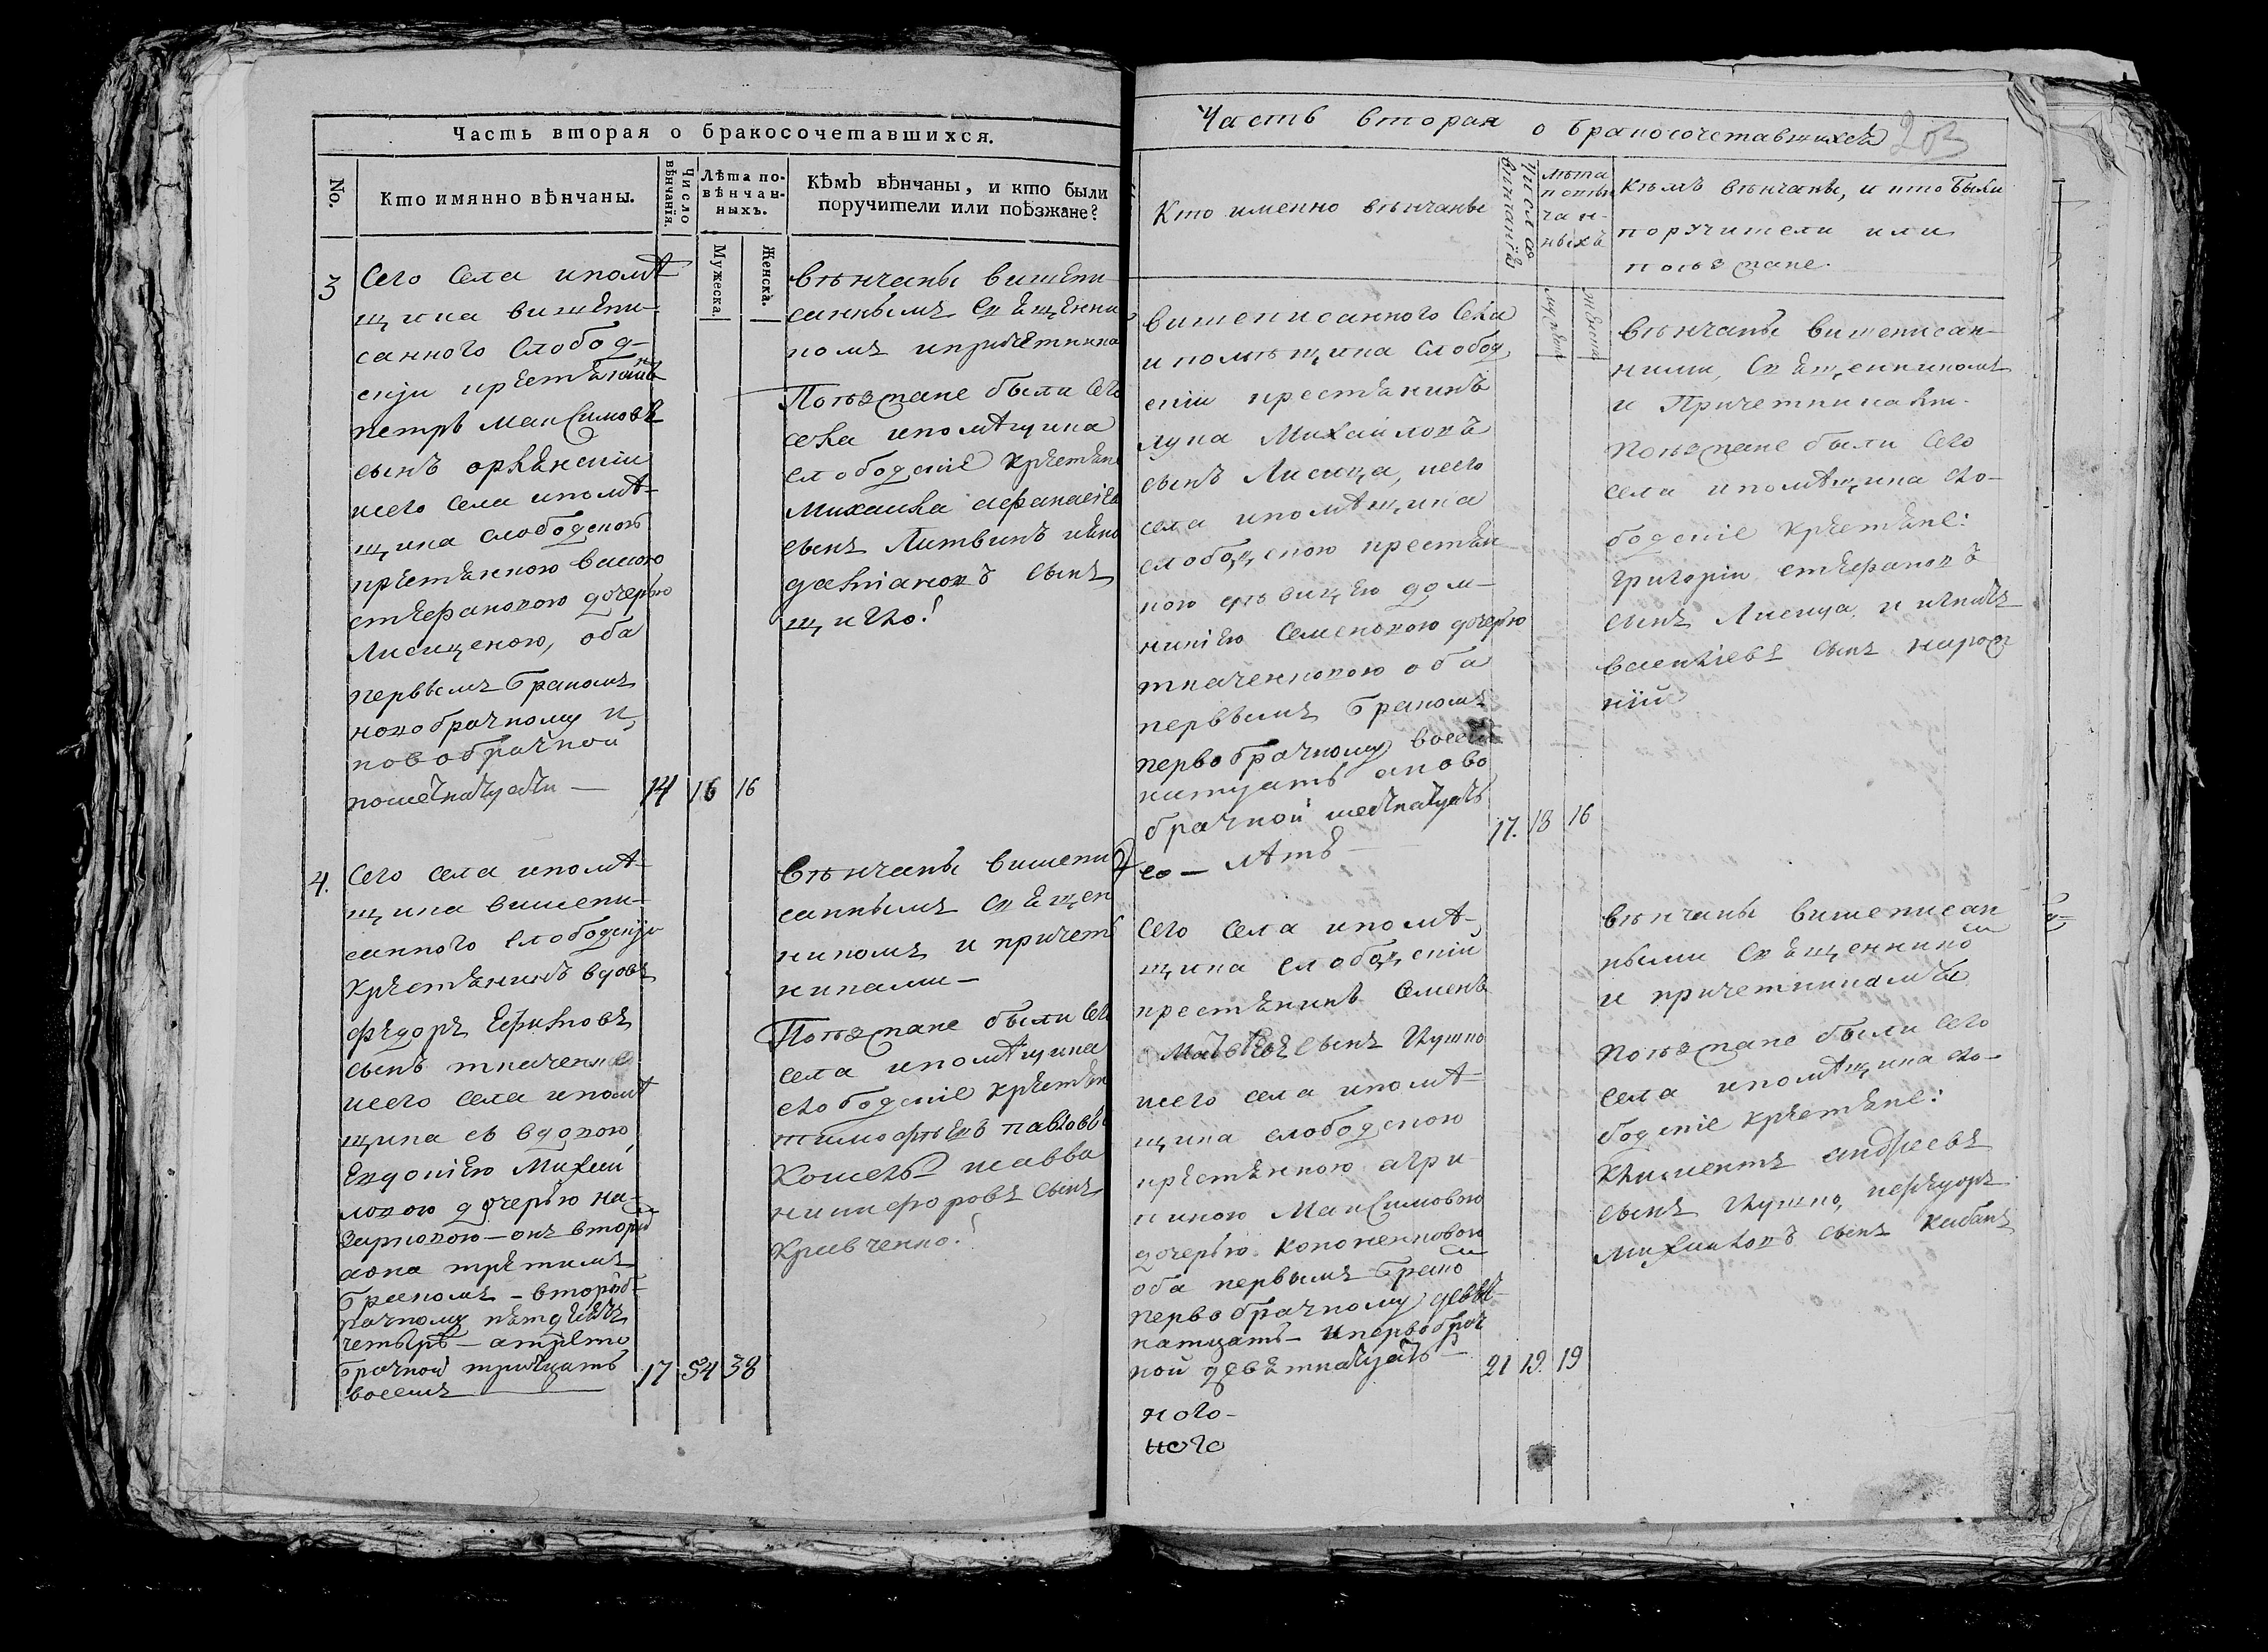 Часть вторая о бракосочетавшихся.
No.
Кто имянно вѣнчаны.
Число вѣнчанія.
Лѣта по-
вѣнчан-
ныхъ.
Мужеска.
Женска.
Кѣмъ вѣнчаны, и кто были
поручители или поѣзжане?
3
Сего Села ипомѣ
щика вишепи-
санного Слобод-
скји крестянинъ
петръ Максимовъ
сынъ
исего Села ипомѣ-
щика слободскою
крестянкою
стефановою дочерью
Лисицею, оба
первымъ бракомъ
новобрачному и
новобрачной
по
14 16 16
вѣнчаны вишепи
саннымъ Священни
комъ ипричетника
Поѣзжане были Сего
села ипомѣщика
слободскіе крестяне
Михаила афанасіев
сынъ Литвинъ
сынъ
4.
Сего села ипомѣ-
щика вишепи-
санного слободскји
крестянинъ вдовъ
федоръ Ефимовъ
сынъ ткаченко
исего села ипомѣ
щика съ вдовою
Евдокіею Михай
ловою дочерью на-
онъ вторы
аона третимъ
бракомъ – вторыб-
рачному пятдесятъ
четыре – атрето
брачной тритцать
восемъ
17 54 38
Вѣнчаны вишепи
саннымъ Священ
никомъ и причет
никами –
Поѣзжане были Сего
села ипомѣщика
слободскіе крестян
тимофѣевъ павловъ
Кошель исавва
никифоровъ сынъ
Кривченко!
Часть вторая о бракосочетавшихся 203
Кто именно вѣнчаны
число вѣнчанія
лѣта
повѣн
чан-
ныхъ
мужеска
женска
Кѣмъ вѣнчаны, и кто были
поручители или
поѣзжане.
вишеписанного Села
и помѣщика Слобод
скіи крестянинъ
лука Михайловъ
сынъ Лисица, исего
села ипомѣщика
слободскою крестян
кою дѣвицею дом-
никіею Семеновою дочерью
ткаченковою оба
первымъ бракомъ
первобрачному восем
натцать аново
брачной шестнатцать
ео – лѣтъ
17. 18 16
вѣнчаны вишеписан-
ними, Священникомъ
и Причетниками.
Поѣзжане были Сего
села ипомѣщика сло-
бодскіе крестяне:
григорій стефановъ
сынъ Лисица, и
василіевъ сынъ
кій
4
Сего села ипомѣ-
щика слободскій
крестянинъ Семенъ
Матвѣевъ сынъ
исего села ипомѣ-
щика слободскою
крестянкою агри-
пиною Максимовою
дочерью Кононенковою
оба первымъ брако
первобрачному девят-
натцать – ипервобрач
ной девятнатцать –
21 19. 19
ного-
ного
вѣнчаны вишеписан
ными Священнико
и причетниками
поѣзжане были Сего
села ипомѣщика сло-
бодскіе крестяне:
Климентъ андреевъ
сынъ
Михайловъ сынъ кабанъ